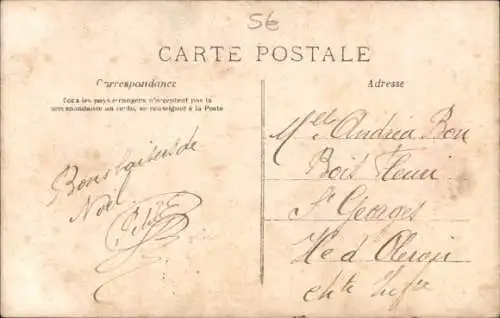 5€
CARTE POSTALE
Correspondance
Tous les pays étrangers n'acceptent pas la
correspondance au verso, se renseigner à la Poste
Bons baisers de
Noël
Adresse
Melle Andréa Bon
Bois Fleuri
St Georges
Ile d'Oleron
chte Infre